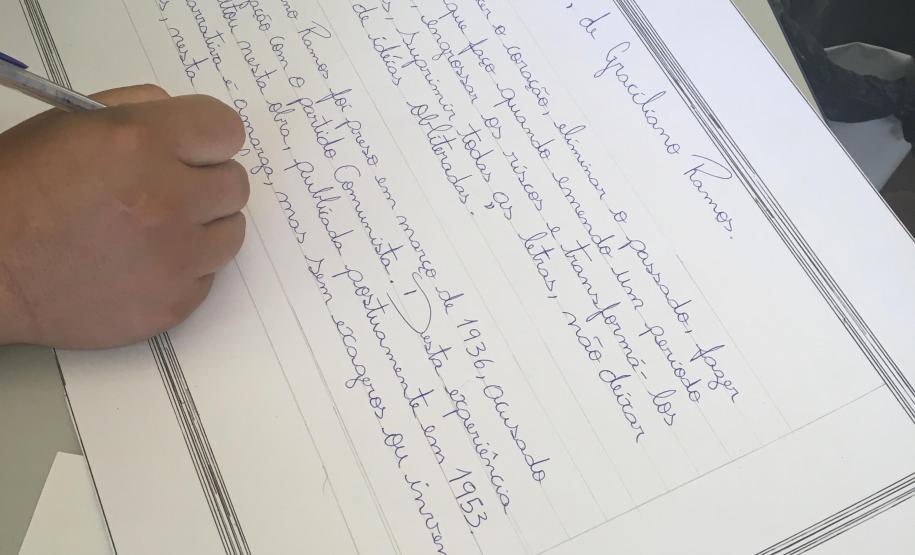 , de Graciliano Ramos.
o coração, eliminar o passado, fazer
que faço quando emendo um período
, engrossar os riscos e transformá-los
, suprimir todas as letras, não deixar
de idéias obliteradas."
Ramos foi preso em março de 1936, acusado
com o partido Comunista. Desta experiência
nesta obra, publicada postumamente em 1953.
e amarga, mas sem exageros ou inven
, nesta